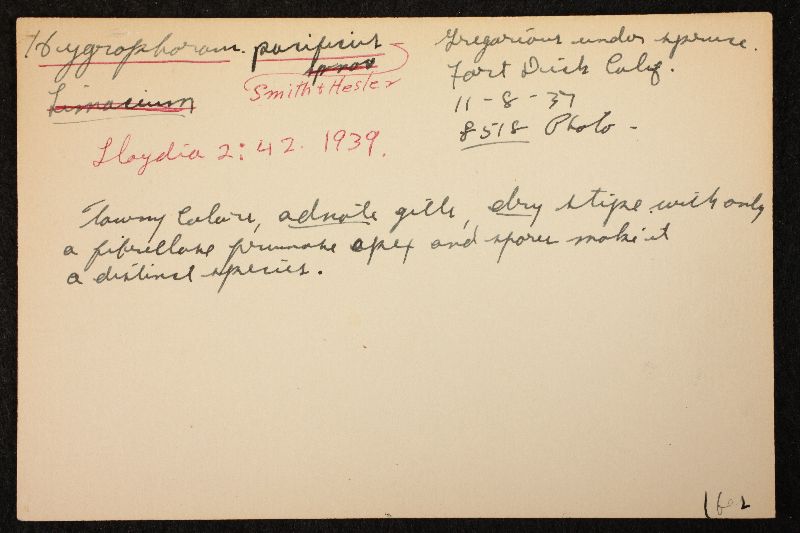 Hygrophorus pacificus
sp. nov.
Smith & Hesler
Limacium
Lloydia 2: 42. 1939.
Gregarious under spruce.
Fort Dick Calif.
11-8-37
8518 Photo -
Tawny colors, adnate gills, dry stipe with only
a fibrillose pruinose apex and spores make it
a distinct species.